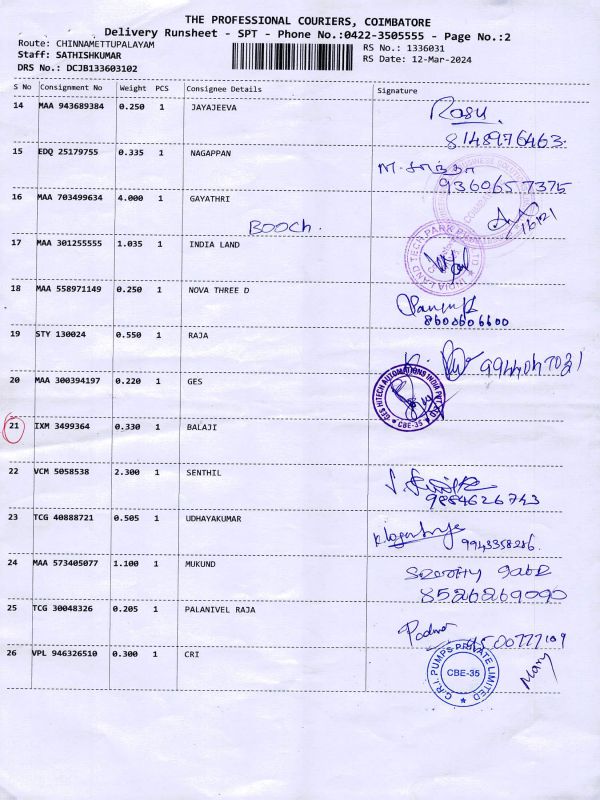 THE PROFESSIONAL COURIERS, COIMBATORE
Delivery Runsheet - SPT - Phone No.:0422-3505555 - Page No.:2
Route: CHINNAMETTUPALAYAM
Staff: SATHISHKUMAR
DRS No.: DCJB133603102
RS No.: 1336031
RS Date: 12-Mar-2024
S No Consignment No Weight PCS Consignee Details Signature
14 MAA 943689384 0.250 1 JAYAJEEVA Rasu
8148976463.
15 EDQ 25179755 0.335 1 NAGAPPAN
9360657375
16 MAA 703499634 4.000 1 GAYATHRI
BOOCH.
17 MAA 301255555 1.035 1 INDIA LAND
INDIA LAND TECH PARK
18 MAA 558971149 0.250 1 NOVA THREE D
8608606600
19 STY 130024 0.550 1 RAJA
9944047031
20 MAA 300394197 0.220 1 GES
GES HITECH AUTOMATIONS INDIA PVT
CBE-35
21 IXM 3499364 0.330 1 BALAJI
22 VCM 5058538 2.300 1 SENTHIL
9884626743
23 TCG 40888721 0.505 1 UDHAYAKUMAR
9943358286.
24 MAA 573405077 1.100 1 MUKUND
8526269090
25 TCG 30048326 0.205 1 PALANIVEL RAJA Padma
9500777109
26 VPL 946326510 0.300 1 CRI
C.R.I. PUMPS PRIVATE LIMITED
CBE-35
Mary